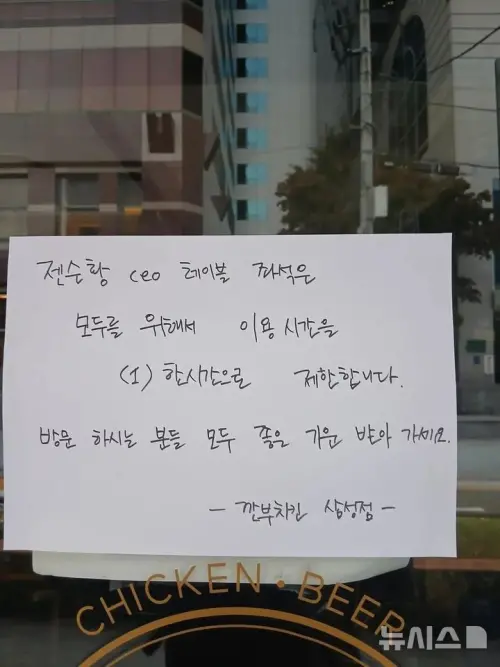 젠슨황 ceo 테이블 좌석은
모두를 위해서 이용시간을
(1) 한시간으로 제한합니다.
방문 하시는 분들 모두 좋은 기운 받아 가세요.
- 깐부치킨 삼성점 -
CHICKEN · BEER
뉴시스